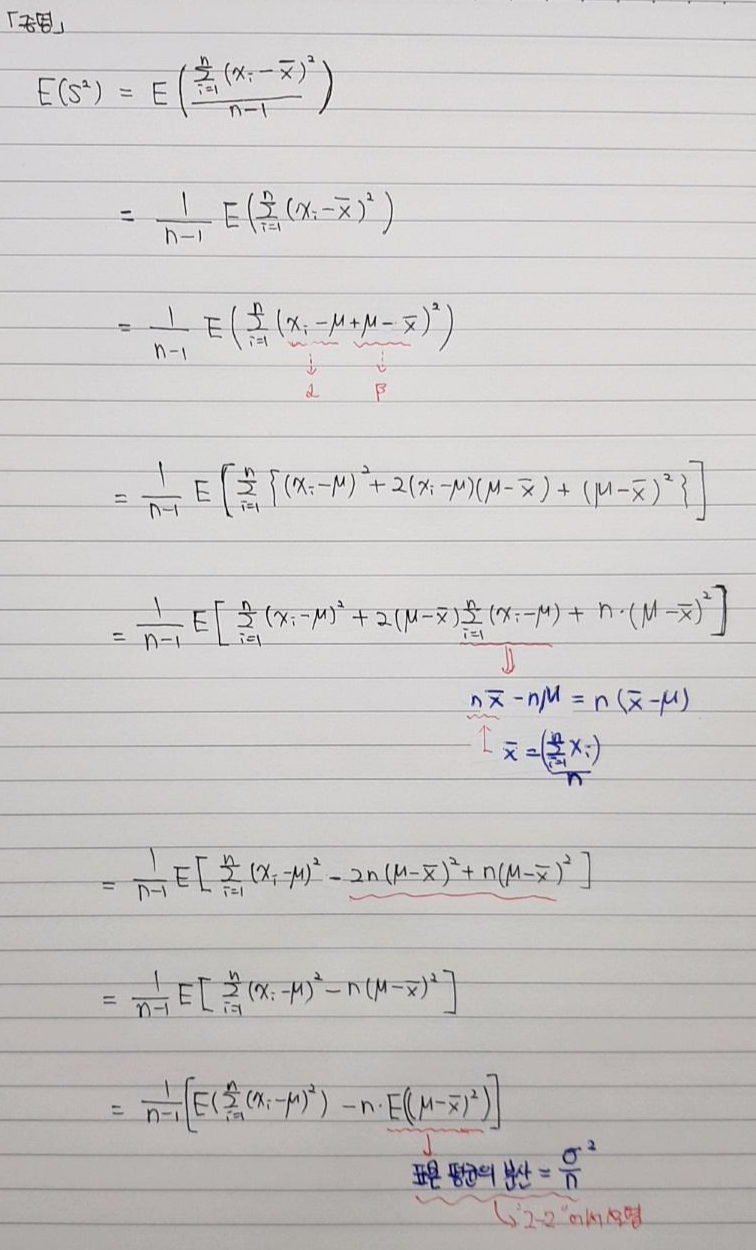 「증명」
E(S²) = E( Σᵢ₌₁ⁿ (xᵢ - x̄)² / n-1 )
= 1/n-1 E( Σᵢ₌₁ⁿ (xᵢ - x̄)² )
= 1/n-1 E( Σᵢ₌₁ⁿ (xᵢ - μ + μ - x̄)² )
↓ ↓
α β
= 1/n-1 E[ Σᵢ₌₁ⁿ { (xᵢ - μ)² + 2(xᵢ - μ)(μ - x̄) + (μ - x̄)² } ]
= 1/n-1 E[ Σᵢ₌₁ⁿ (xᵢ - μ)² + 2(μ - x̄) Σᵢ₌₁ⁿ (xᵢ - μ) + n·(μ - x̄)² ]
⇓
nx̄ - nμ = n(x̄ - μ)
↑ x̄ = (Σᵢ₌₁ⁿ xᵢ) / n
= 1/n-1 E[ Σᵢ₌₁ⁿ (xᵢ - μ)² - 2n(μ - x̄)² + n(μ - x̄)² ]
= 1/n-1 E[ Σᵢ₌₁ⁿ (xᵢ - μ)² - n(μ - x̄)² ]
= 1/n-1 [ E( Σᵢ₌₁ⁿ (xᵢ - μ)² ) - n·E((μ - x̄)²) ]
↓
표본 평균의 분산 = σ²/n
↳ "2-2"에서 증명